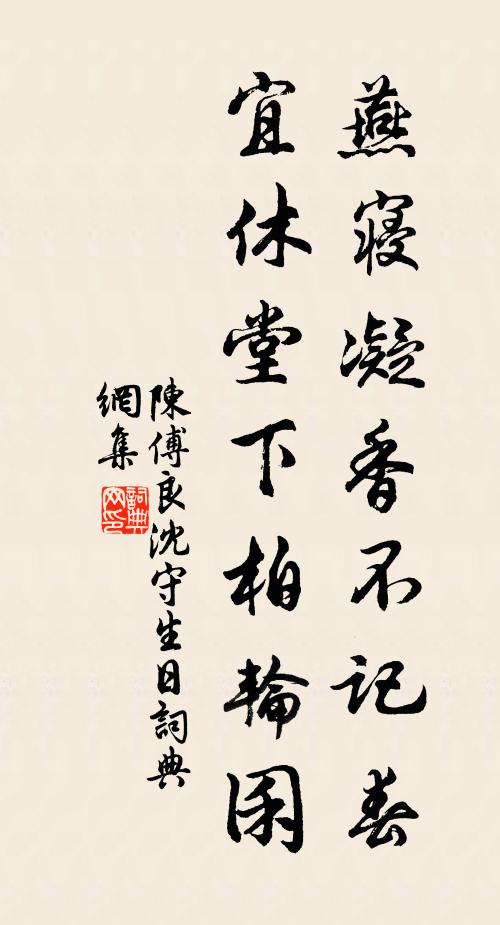 燕寢凝香不記春
宜休堂下柏輪囷
陳傅良沈守生日詞典
網集
詞典網印